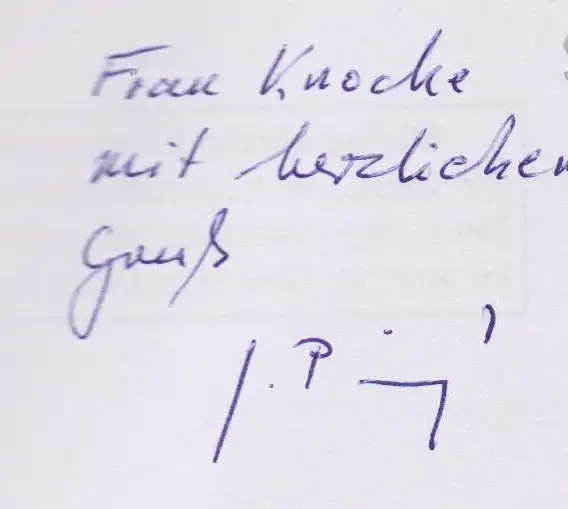 Frau Knocke
mit herzlichem
Gruß